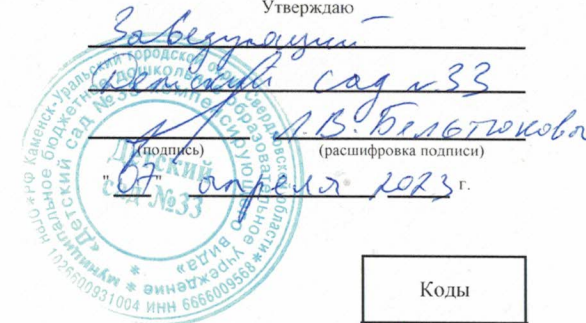 Утверждаю
Заведующий
детский сад №33
Л.В. Бельтюкова
(подпись) (расшифровка подписи)
"07" апреля 2023 г.
Детский
сад №33
Каменск-Уральский городской округ Свердловской области
муниципальное бюджетное дошкольное образовательное учреждение
«Детский сад №33 компенсирующего вида»
1026600931004 ИНН 6666009568
Коды